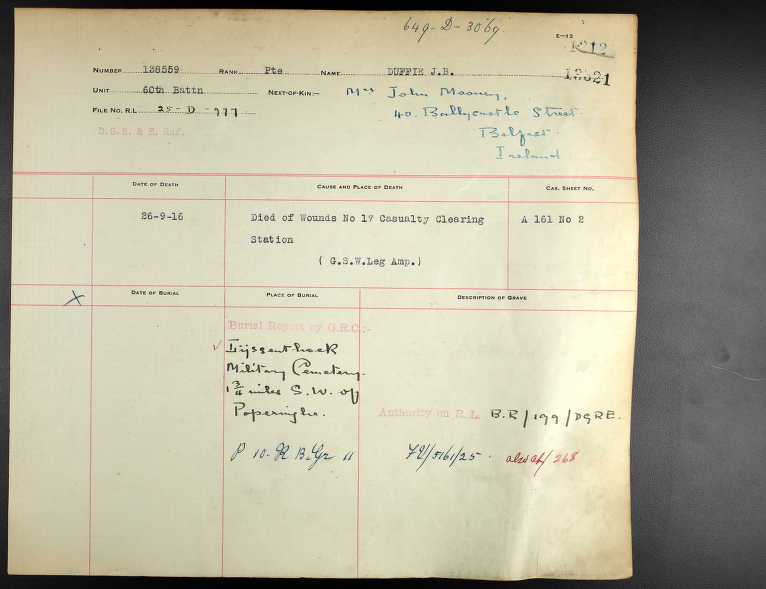 649-D-3069
E-12
NUMBER 138559 RANK Pte NAME DUFFIE J.B.
UNIT 60th Battn NEXT-OF-KIN:- Mrs John Mooney,
FILE NO. R.L. 25-D-977 40. Ballycastle Street.
D.G.R. & E. Ref. Belfast.
Ireland
DATE OF DEATH CAUSE AND PLACE OF DEATH CAS. SHEET NO.
26-9-16 Died of Wounds No 17 Casualty Clearing A 161 No 2
Station
( G.S.W.Leg Amp.)
X DATE OF BURIAL PLACE OF BURIAL DESCRIPTION OF GRAVE
Burial Report by G.R.C.:-
✓ Lijssenthoek
Military Cemetery.
1 3/4 miles S.W. of
Poperinghe.
Authority on R.L. B.R/199/DGRE.